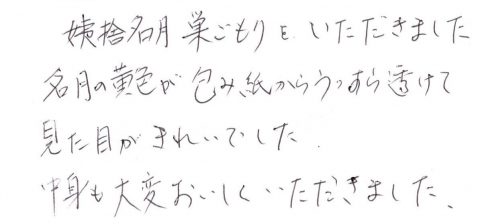 姨捨名月 巣ごもりを いただきました
名月の黄色が 包み紙からうっすら透けて
見た目が きれいでした.
中身も大変おいしくいただきました、